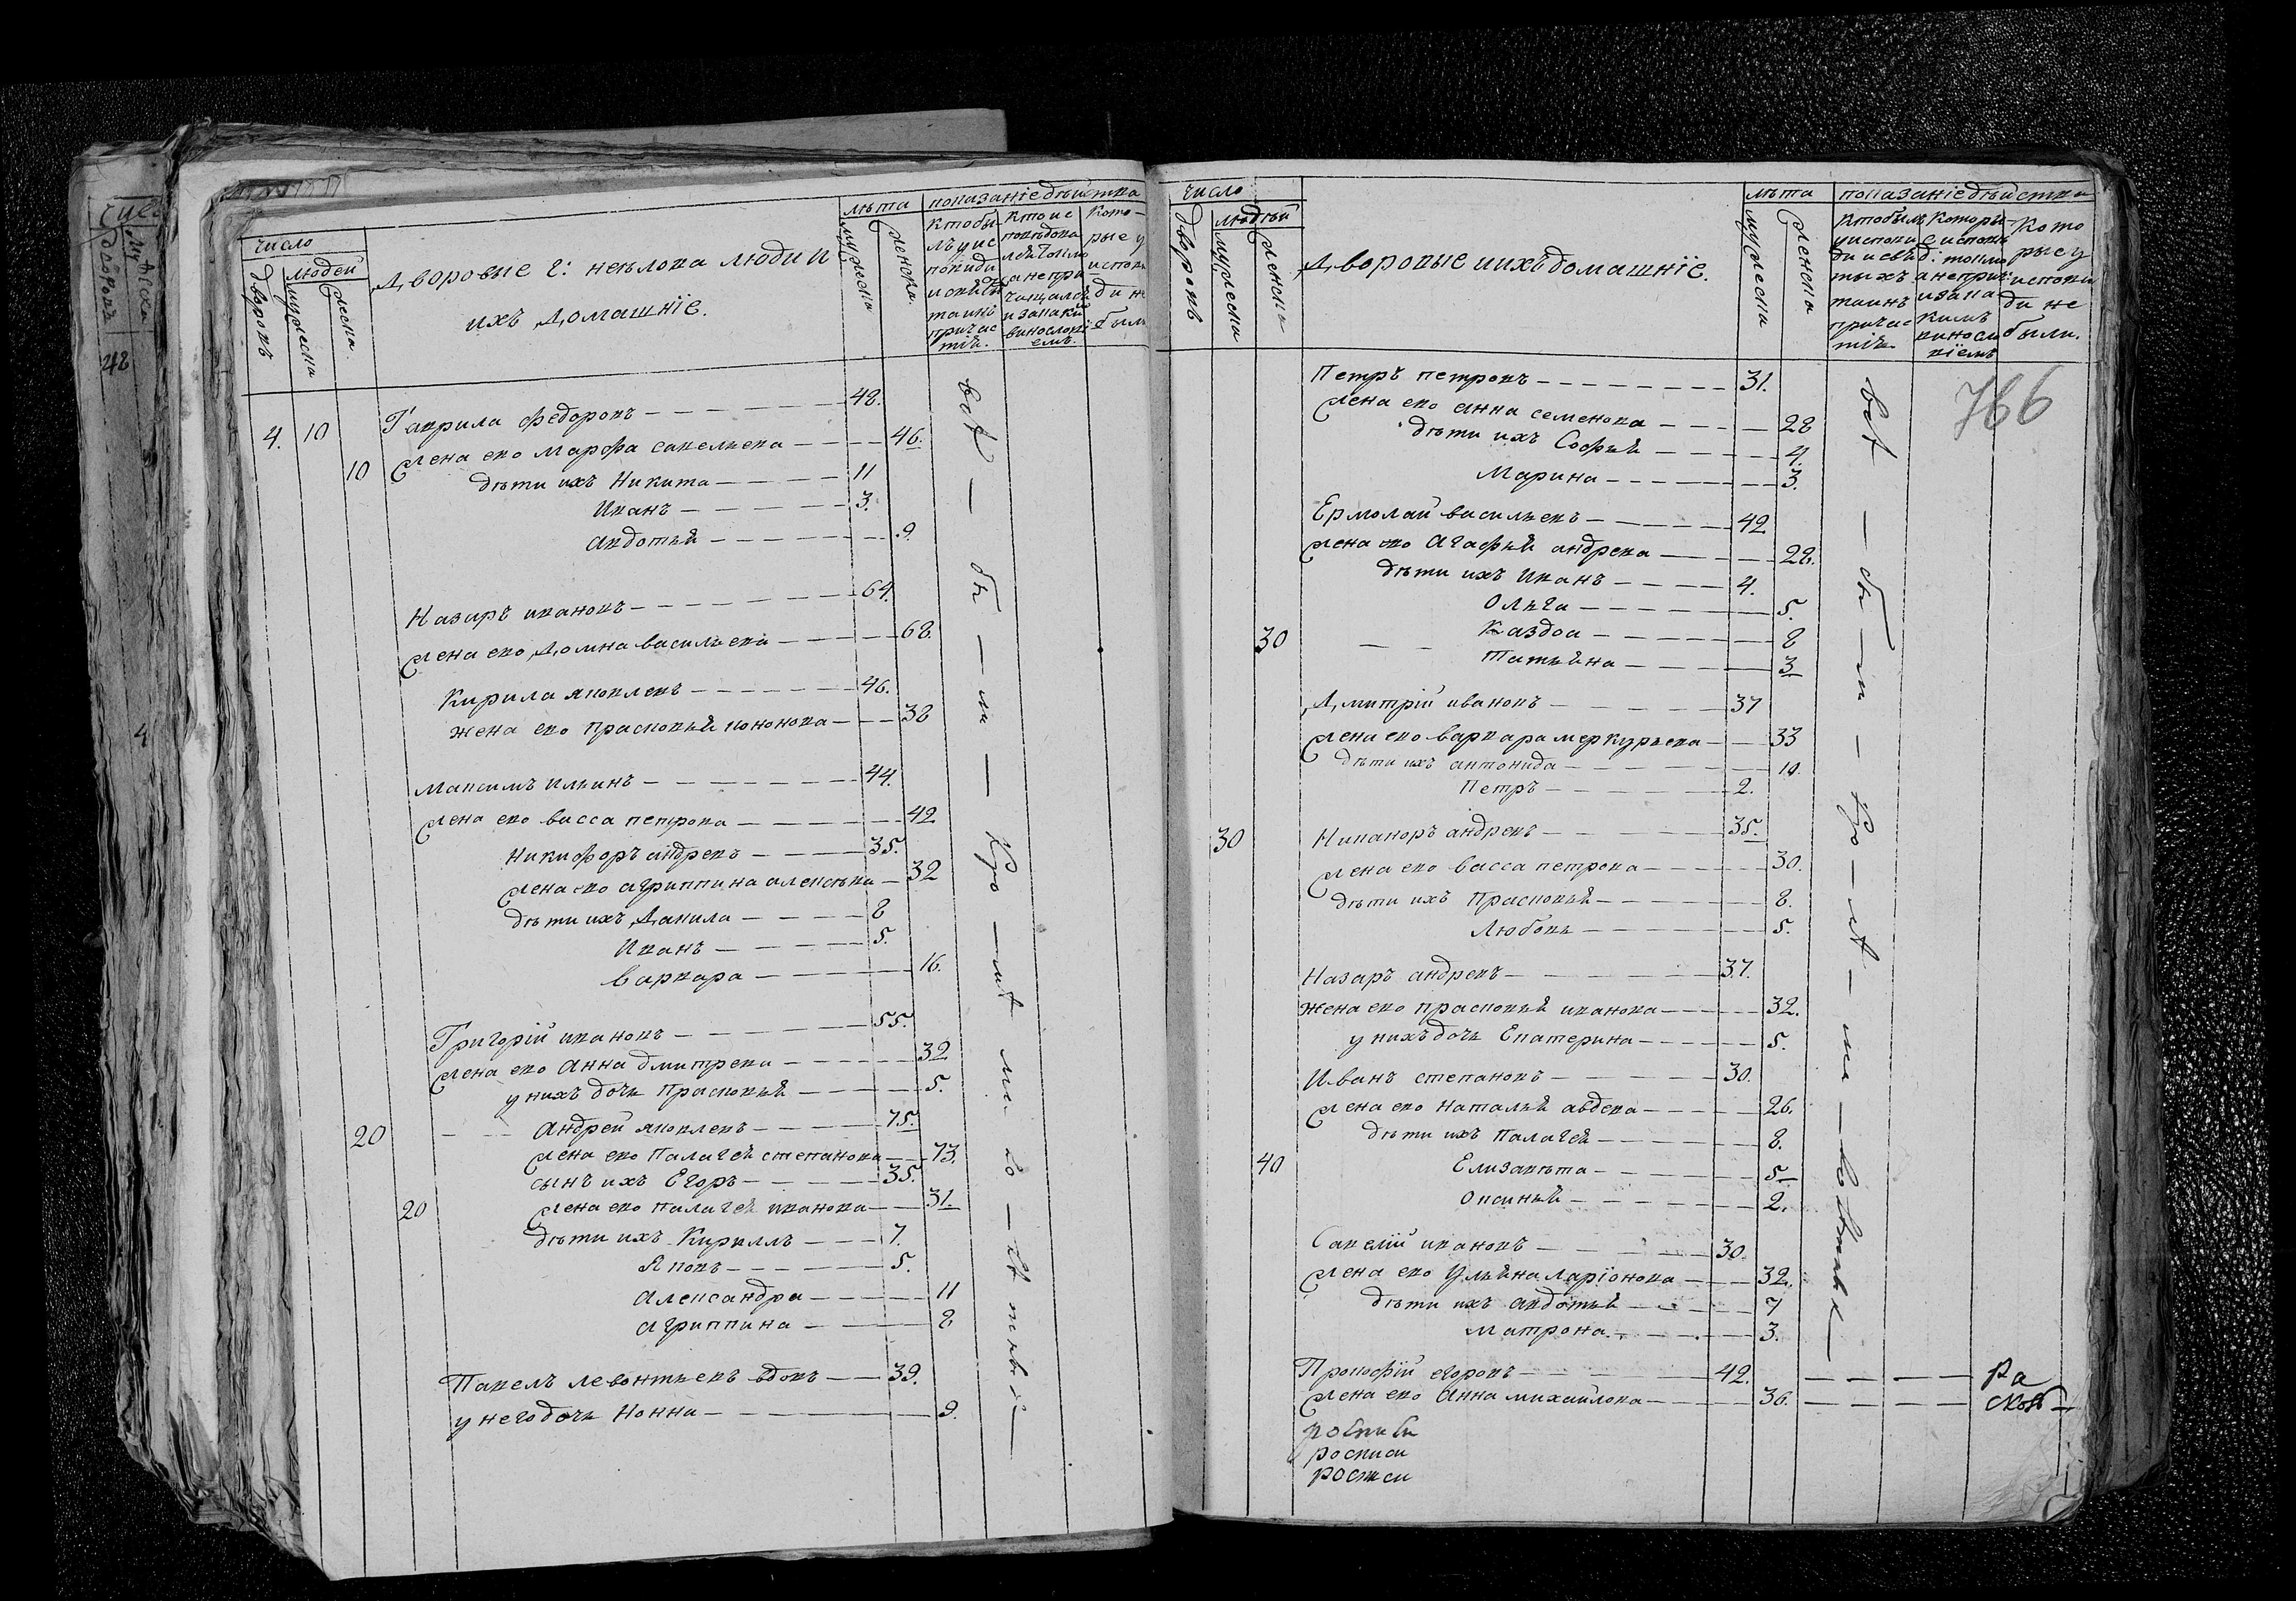 число
дворовъ
людей
мужеска
женска
Дворовые г: неѣлова люди и
ихъ домашніе.
лѣта
мужеска
женска
показаніе дѣйства
Кто бы
лъ у ис
повѣди
и святы
таинъ
причас
тія.
кто ис
повѣдова
лся толко
а не при
чащался
и за каки
виносло
емъ.
Кото-
рые у
испове
ди не
были
4. 10 Гаврила федоровъ 48.
10 жена ево марфа савельева 46.
дѣти ихъ Никита 11
Иванъ 3.
авдотья 9.
Назаръ ивановъ 64.
жена ево Домна васильева 68.
Кирила яковлевъ 46.
жена ево прасковья кононова 38
максимъ ильинъ 44.
жена ево васса петрова 42
Никифоръ андревъ 35.
жена ево агриппина алексѣва 32
дѣти ихъ Данила 8
Иванъ 5.
варвара 16.
Григорій ивановъ 55.
жена ево Анна дмитрева 32
у нихъ дочь прасковья 5.
20 андрей яковлевъ 75.
жена ево палагея степанова 73.
сынъ ихъ Егоръ 35.
20 жена ево палагея иванова 31.
дѣти ихъ Кириллъ 7.
Яковъ 5.
александра 11
агриппина 8
Павелъ левонтьевъ вдовъ 39.
у него дочь Нонна 9.
число
дворовъ
людей
мужеска
женска
Дворовые и ихъ домашніе.
лѣта
мужеска
женска
показаніе дѣйства
Кто былъ
у испове
ди и свя
тыхъ
таинъ
причас
тія.
Которы
е испове
д: толко
а неприч:
и за ка
кимъ
виносло
віемъ
Кото
рые у
исповѣ
ди не
были.
766
Петръ петровъ 31.
жена ево анна семенова 28
дѣти ихъ Софья 4.
Марина 3.
Ермолай васильевъ 42
жена ево Агафья андрева 28.
дѣти ихъ иванъ 4.
Ольга 5.
30 Каздоа 8
татьяна 3
Дмитрій ивановъ 37
жена ево варвара меркурьева 33
дѣти ихъ антонида 10.
Петръ 2.
30 Никаноръ андревъ 35.
жена ево васса петрова 30.
дѣти ихъ прасковья 8.
Любовь 5.
Назаръ андревъ 37.
жена ево прасковья иванова 32.
у нихъ дочь Екатерина 5.
Иванъ степановъ 30.
жена ево наталья авдева 26.
дѣти ихъ палагея 8.
40 Елизавѣта 5
оксинья 2.
Савелій ивановъ 30
жена ево Ульяна ларіонова 32.
дѣти ихъ авдотья 7
матрона 3.
Прокофій егоровъ 42. Ра
жена ево Анна михайлова 36. скол
росписи
росписи
росписи